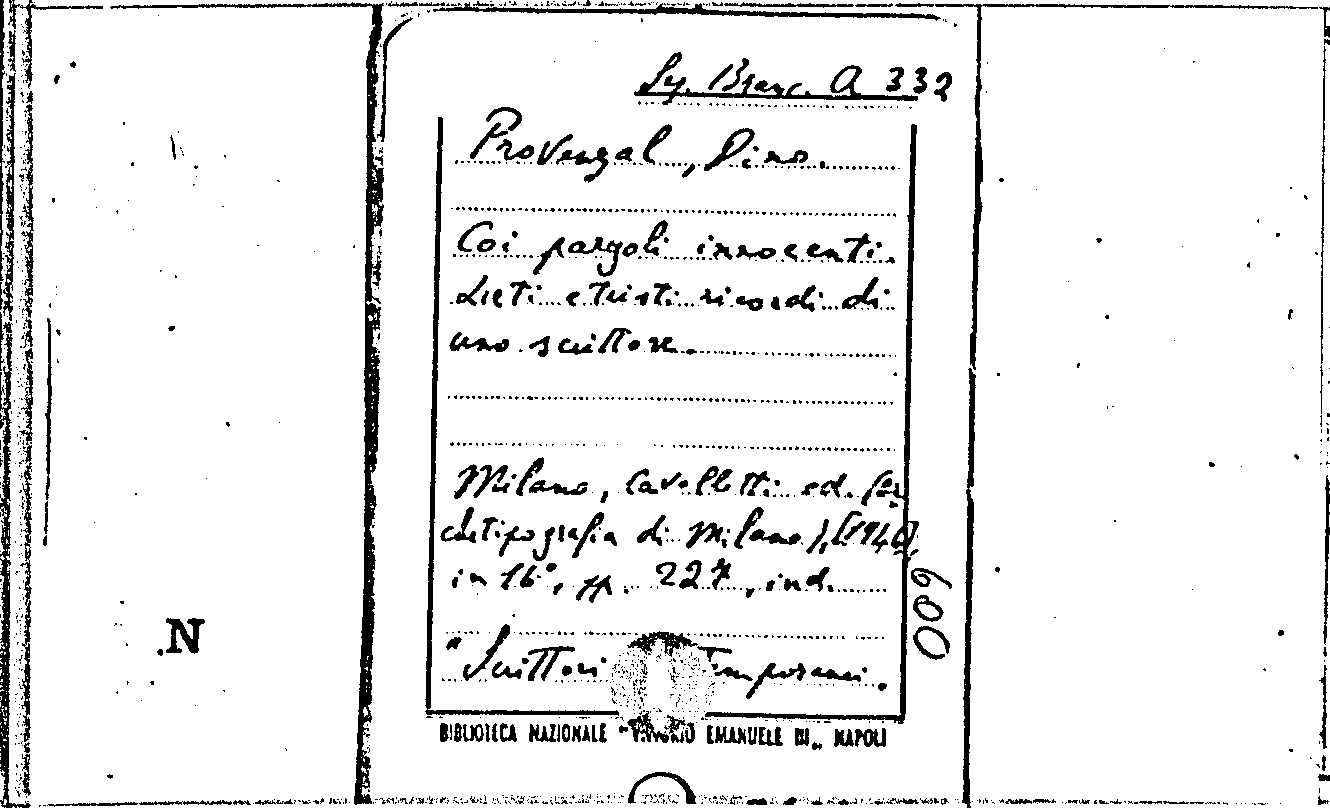 Sy. Branc. A 332
Provenzal, Dino.
Coi pargoli innocenti.
Lieti e tristi ricordi di
uno scittore.
Milano, Cavallotti ed. (ar
chetipografia di Milano), [1946],
in 16°, pp. 227, ind.
"Scrittori temporanei.
600
N
BIBLIOTECA NAZIONALE "VITTORIO EMANUELE III" NAPOLI